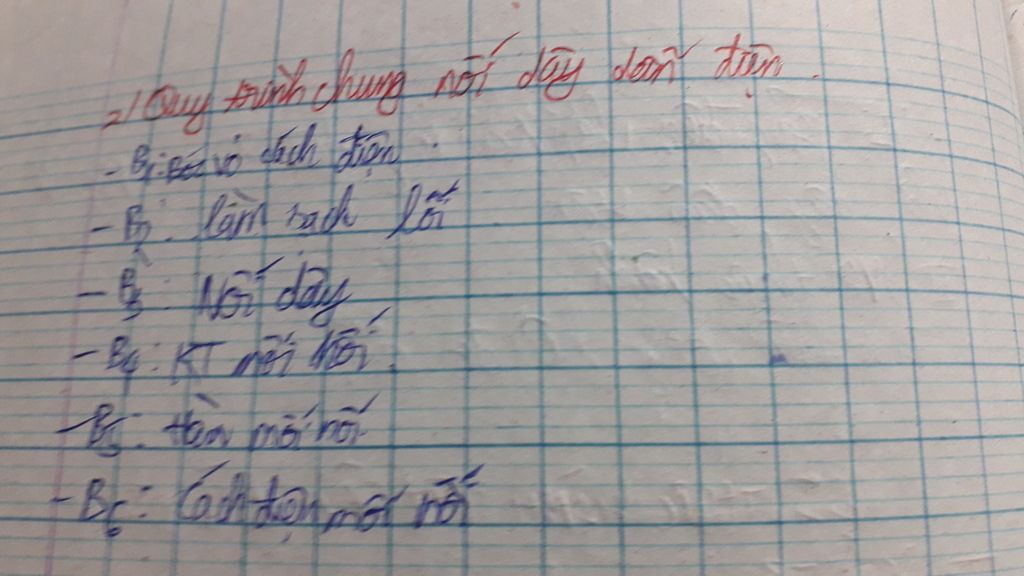 2/ Quy trình chung nối dây dẫn điện.
- B1: Bóc vỏ cách điện.
- B2: làm sạch lõi
- B3: Nối dây
- B4: KT mối nối.
- B5: Hàn mối nối
- B6: Cách điện mối nối